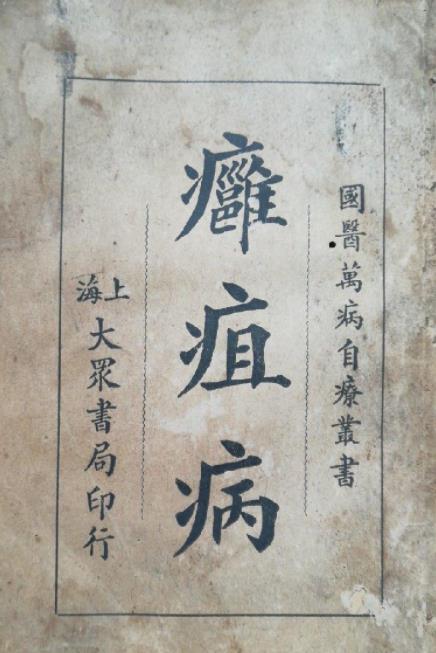 國醫萬病自療叢書
癰疽病
上海
大眾書局印行